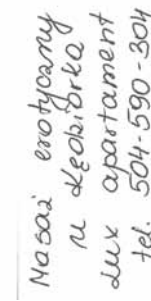 Masaż erotyczny
u Kędziorka
Lux apartament
tel. 504-590-304